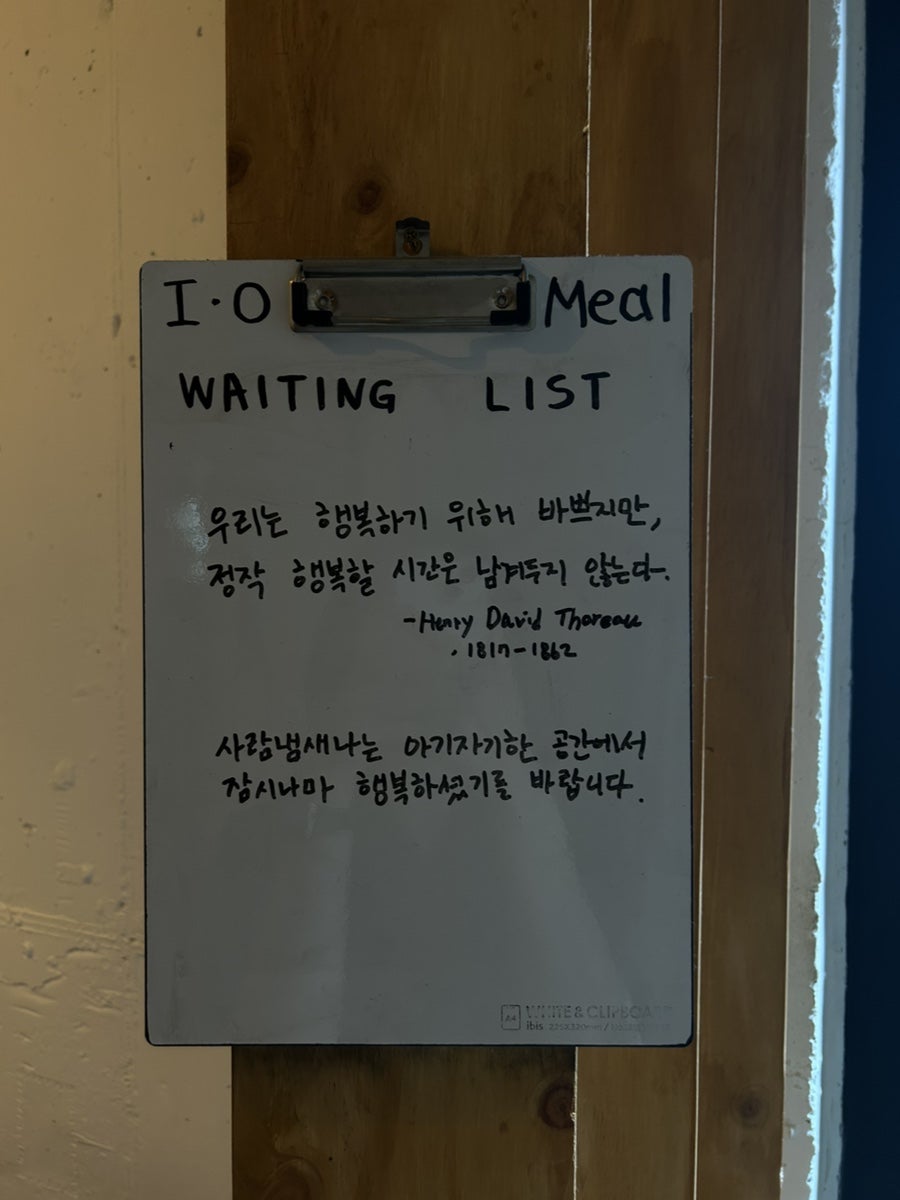 I·O Meal
WAITING LIST
우리는 행복하기 위해 바쁘지만,
정작 행복할 시간은 남겨두지 않는다.
-Henry David Thoreau
·1817-1862
사람냄새나는 아기자기한 공간에서
잠시나마 행복하셨기를 바랍니다.
A4 WHITE & CLIPBOARD
ibis 225X320mm /